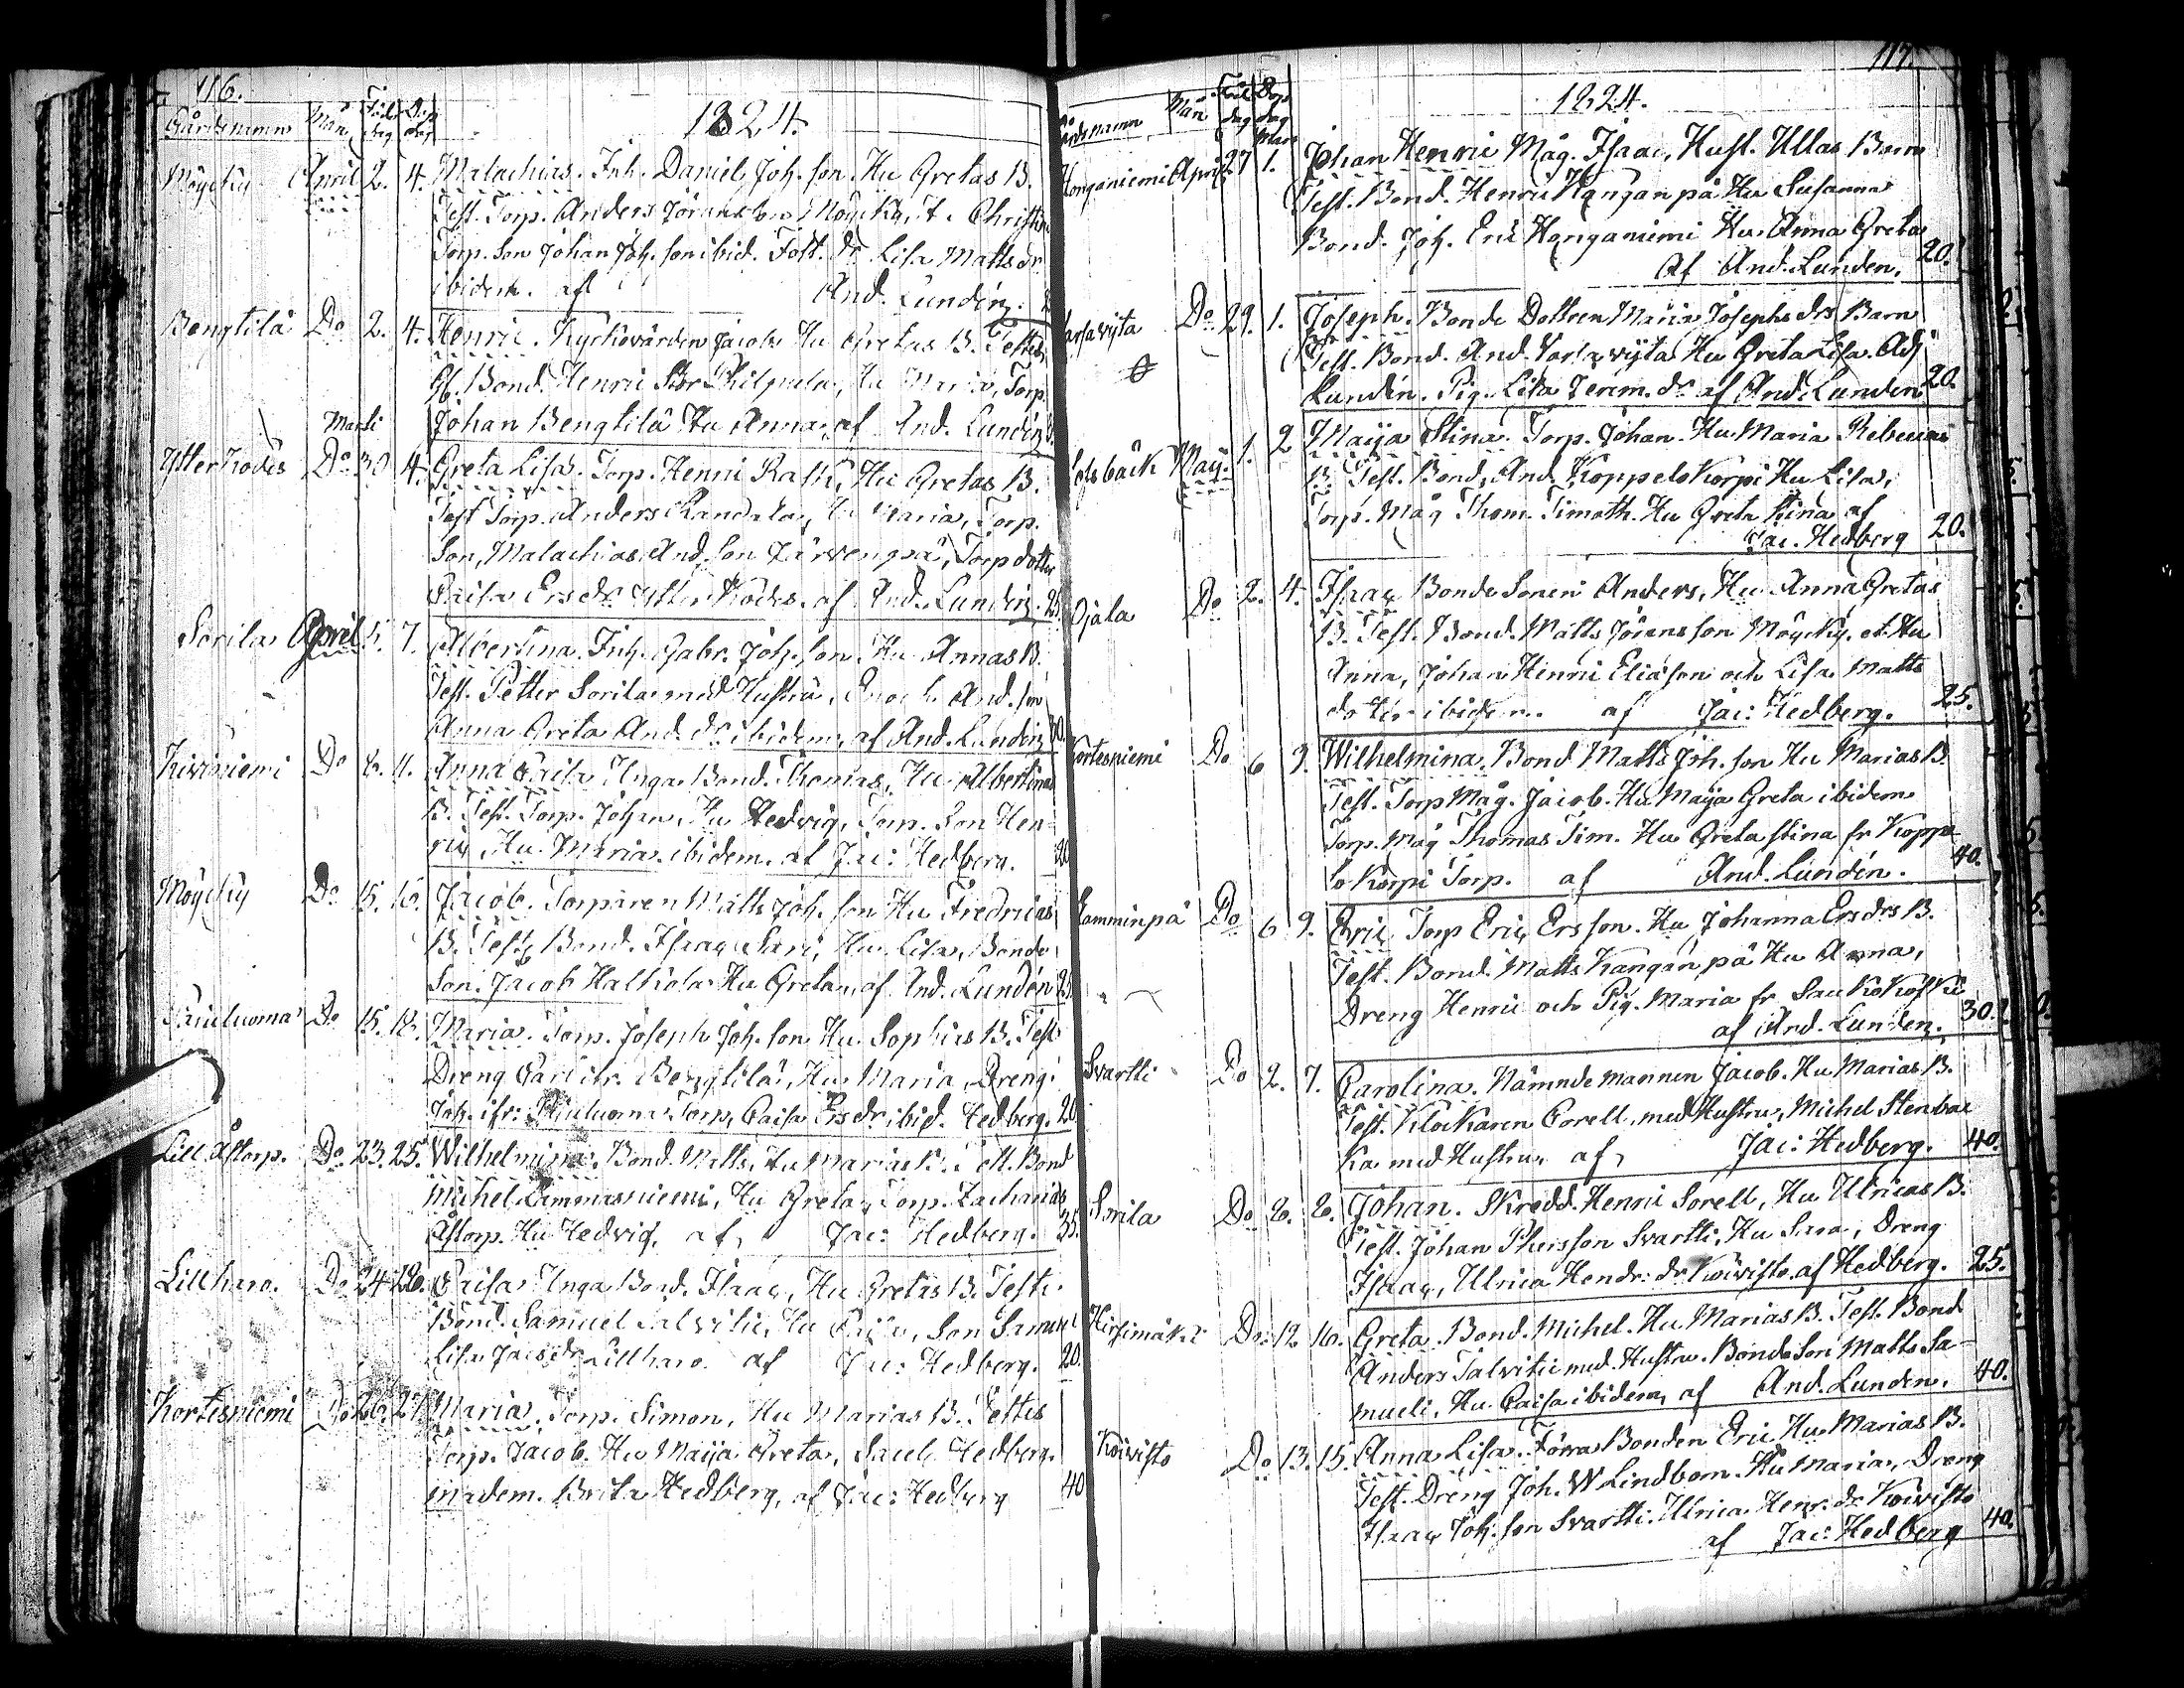 116.
Gårdsnamn Mån Föd. dag Döp. dag 1824.
Möycky April 2. 4. Malachias. Inh. Daniel Joh. son. Hu Gretas B.
Test. Torp. Anders Jöransson Möycky,
Torp. Son Johan Joh. son ibid. Lisa Mattsdr
ibidem. af And. Lundén.
Bengtilä Do 2. 4. Henric. Kyrkovärden Jacob Hu Gretas B. Testes
Bond. Henric Hu Maria, Torp.
Johan Bengtilä Hu Anna, af And. Lundén
Marti
Ytterkodis Do 30 4. Greta Lisa. Torp. Henric Hu Gretas B.
Test Torp. Anders Randala, Hu Maria, Torp.
Son, Malachias And. Son Järvenpä, Torp dotter
Caisa Ersdr Ytter Kodis. af And. Lundén. 25.
Sorila April 5. 7. Albertina. Inh. Gabr. Joh. son. Hu Annas B.
Test. Petter Sorila med Hustru, Enoch And. son
Anna Greta And. dr ibidem, af And. Lundén
Kiviniemi Do 8. 11. Anna Caisa Unga Bond. Thomas, Hu Albertinas
B. Test. Torp. Johan, Hu Hedvig, Torp. Son Hen-
ric, Hu Maria ibidem. af Jac: Hedberg. 20
Möycky Do 15. 16. Jacob. Torparen Matts Joh. son Hu Fredricas
B. Test. Bond. Isaac Sari, Hu Lisa, Bonde
Son. Jacob Halkola Hu Greta, af And. Lundén 25
Do 15. 18. Maria. Torp. Joseph Joh. son. Hu Sophias B. Test
Dreng Carl ifr. Bengtilä, Hu Maria, Dreng.
Joh. ifr: Torp, Caisa Ersdr ibid. Hedberg. 20
Lill Åstorp. Do 23. 25. Wilhelmina. Bond. Matts, Hu Marias B. Test. Bond
Michel Lammasniemi, Hu Greta, Torp. Zacharias
Åstorp. Hu Hedvig, af Jac: Hedberg. 35.
Lillharo. Do 24 26. Caisa Unga Bond. Isaac, Hu Gretas B. Test.
Bond. Samuel Salvitie, Hu Caisa, Son Samuel
Lisa Jacsdr Lillharo af Jac: Hedberg. 20.
Kortesniemi Do 26. 27. Maria. Torp. Simon, Hu Marias B. Testes
Torp. Jacob. Hu Maija Greta, Jacob Hedberg.
madem. Brita Hedberg, af Jac: Hedberg 40
117.
Gårdsnamn Mån Föd. dag Döp dag 1824.
Honganiemi April 27 1. Johan Henric Måg. Isaac, Hust. Ullas Barn
Test. Bond. Henric Kanganpä Hu Susanna
Bond. Joh. Eric Honganiemi Hu Anna Greta
af And. Lundén. 20.
Do 29. 1. Joseph. Bonde Dottren Maria Josephsdrs Barn
Test. Bond. And. Hu Greta Lisa. Adj
Lundén. Pig. Lisa Jerem. dr af And. Lundén 20.
May. 1. 2 Maija Stina. Torp. Johan. Hu Maria Rebeccas
B. Test. Bond. And. Koppelokorpi Hu Lisa,
Torp. Måg Thom. Timoth. Hu Greta Stina af
Jac. Hedberg 20.
Ojala Do 2. 4. Isaac Bonde Sonen Anders, Hu Anna Gretas
B. Test. Bond. Matts Jöransson Möycky. et Hu
Anna, Johan Henric Eliason och Lisa Matts
dotter ibidem. af Jac: Hedberg. 25.
Kortesniemi Do 6 9. Wilhelmina. Bond Matts Joh. son Hu Marias B.
Test. Torp Måg. Jacob. Hu Maija Greta ibidem
Torp. Måg Thomas Tim. Hu Greta Stina fr Koppe
lo Korpi Torp. af And. Lundén. 40.
Do 6 9. Eric Torp Eric Ersson. Hu Johanna Ersdrs B.
Test. Bond. Matts Kanganpä Hu Anna,
Dreng Henric och Pig. Maria fr Saukokoski
af And. Lundén. 30.
Svartti Do 2. 7. Carolina. Nämndemannen Jacob. Hu Marias B.
Test. Klockaren Corell, med Hustru, Michel Stenbac
ka med Hustru, af Jac: Hedberg. 40.
Sorila Do 8. 8. Johan. Skredd. Henric Sorell, Hu Ulricas B.
Test. Johan Phersson Svartti, Hu Sara, Dreng
Isaac, Ulrica Hendr: dr Koivisto af Hedberg. 25.
Hirsimäki Do. 12. 16. Greta. Bond. Michel. Hu Marias B. Test. Bond
Anders Salvitie med Hustru. Bonde Son Matts Sa-
mueli, Hu. Caisa ibidem, af And. Lundén. 40.
Koivisto Do 13. 15. Anna Lisa. Förra Bonden Eric Hu Marias B.
Test. Dreng Joh. W Lindbom. Hu Maria, Dreng
Isaac Joh. son Svartti. Ulrica Henr. dr Koivisto
af Jac: Hedberg 40.